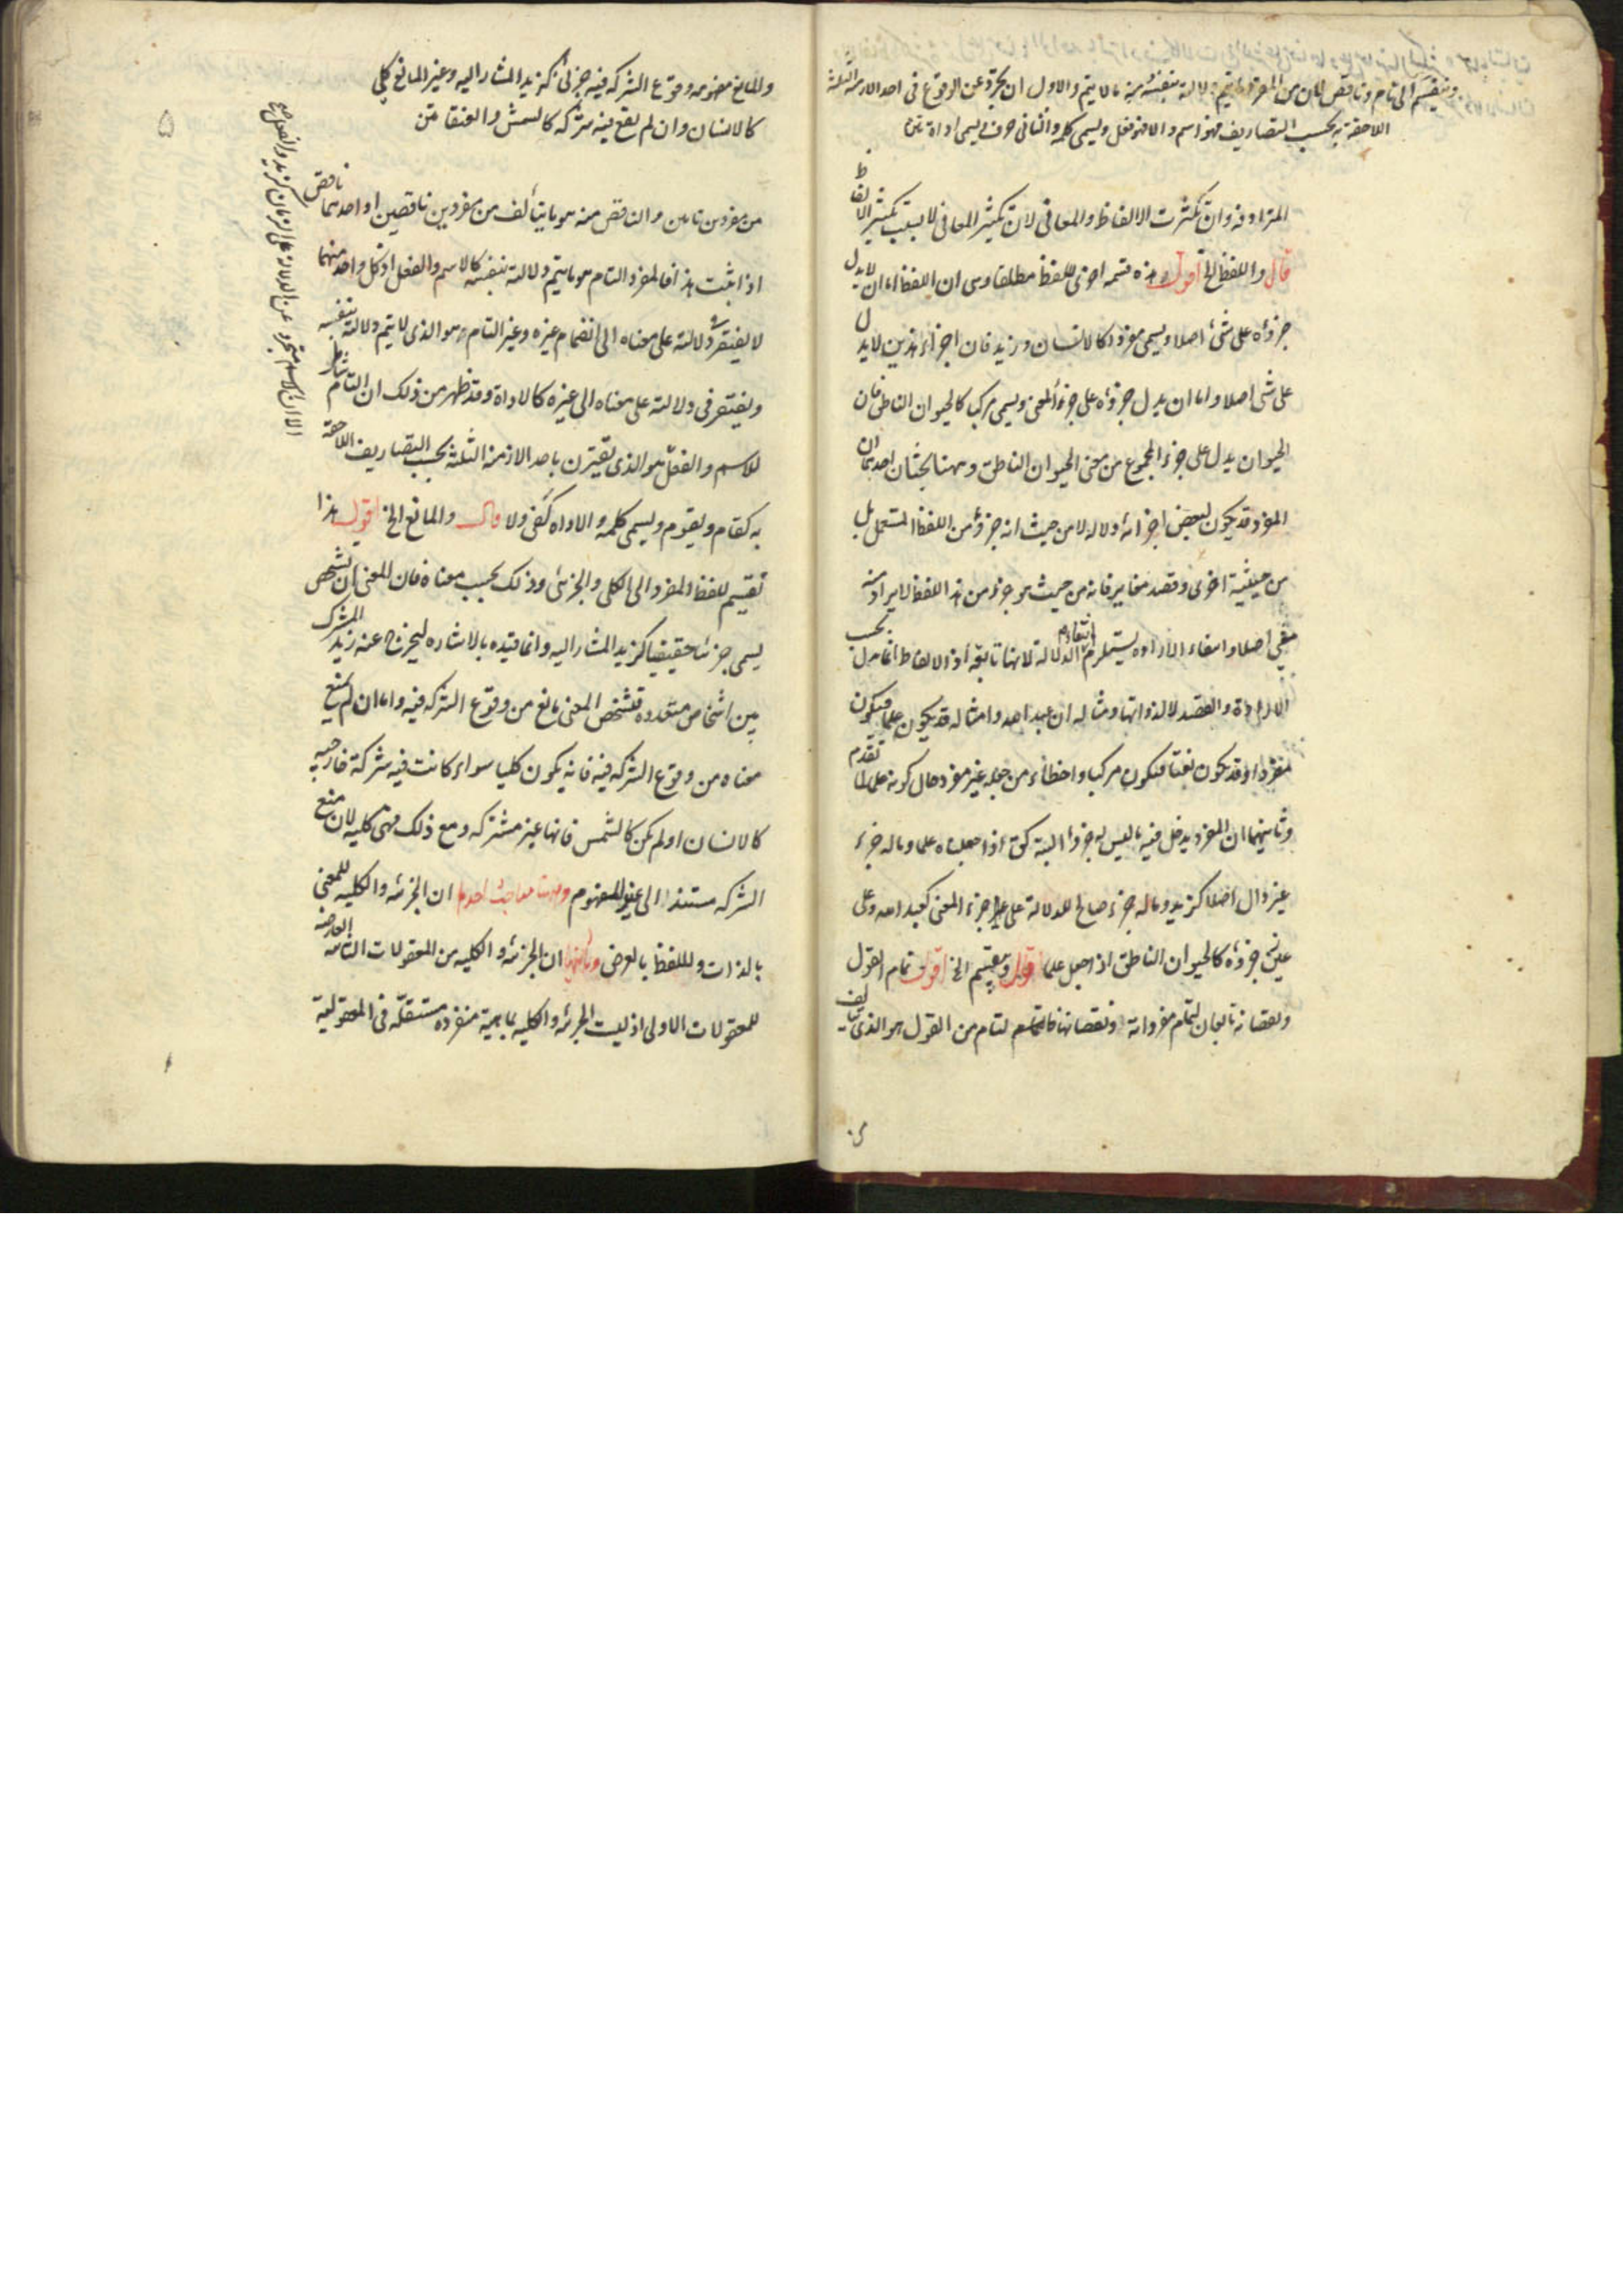 وينقسم الى تام وناقص لان من المفرد ما يتم دلالته بنفسه ومنه ما لا يتم والاول ان تجرد عن الوقوع فى احد الازمنة الثلثة
اللاحقة به بحسب التصاريف فهو اسم والا فهو فعل ويسمى كلمة والثانى حرف ويسمى اداة متن
المترادفه وان تكثرت الالفاظ والمعانى لان تكثير المعانى لا يستتب تكثير الالفاظ
قال واللفظ الخ اقول هذه قسمه اخرى للفظ مطلقا وهى ان اللفظ اما ان لا يدل
جزؤه على شئ اصلا ويسمى مفردا كالانسان وزيد فان اجزاء هذين لا يدل
على شى اصلا واما ان يدل جزؤه على جزء المعنى ويسمى مركبا كالحيوان الناطق فان
الحيوان يدل على جزء المجموع من معنى الحيوان الناطق وههنا بحثان احدهما ان
المفرد قد يكون لبعض اجزائه دلاله لا من حيث انه جزؤ من اللفظ المستعمل بل
من حيثية اخرى وقصد مغاير فانه من حيث هو جزء من هذا اللفظ لا يراد منه
معنى اصلا وانتفاء الاراده يستلزم انتفاء الدلالة لانها تابعة اذ الالفاظ انما يدل بحسب
الارادة والقصد لا لذواتها ومثاله ان عبد الله وامثاله قد يكون علما فيكون
مفردا وقد يكون نعتا فيكون مركبا واخطاء من جعله غير مفرد حال كونه علما لما تقدم
وثانيهما ان المفرد يدخل فيه ما ليس له جزء البتة كق اذا جعلناه علما وما له جزء
غير دال اصلا كزيد وما له جزء صالح للدلالة على غير جزء المعنى كعبد الله وعلى
عين جزؤه كالحيوان الناطق اذا جعل علما قال وينقسم الخ اقول تمام القول
ونقصانه تابعان لتمام مفرداته ونقصانها فالتام من القول هو الذى يتالف
والمانع مفهومه وقوع الشركه فيه جزئى كزيد المشار اليه وغير المانع كلى
كالانسان وان لم يقع فيه شركه كالشمش والعنقا متن
۵
من مفردين تامين والناقص منه هو ما يتألف من مفردين ناقصين او احدهما ناقص
اذا ثبت هذا فالمفرد التام هو ما يتم دلالته بنفسه كالاسم والفعل اذ كل واحد منهما
لا يفتقر فى دلالته على معناه الى انضمام غيره وغير التام هو الذى لا يتم دلالته بنفسه
ويفتقر فى دلالته على معناه الى غيره كالاداة وقد ظهر من ذلك ان التام شامل
للاسم والفعل هو الذى تقترن باحد الازمنة الثلثة بحسب التصاريف اللاحقة
به كقام ويقوم ويسمى كلمه والاداه كفى ولا قال والمانع الخ اقول هذا
تقسيم للفظ المفرد الى الكلى والجزئى وذلك بحسب معناه فان المعنى ان تشخص
يسمى جزئيا حقيقيا كزيد المشار اليه وانما قيده بالاشاره ليخرج عنه زيد المشترك
بين اشخاص متعدده فتشخص المعنى مانع من وقوع الشركه فيه واما ان لم يمنع
معناه من وقوع الشركه فيه فانه يكون كليا سواء كانت فيه شركة خارجيه
كالانسان او لم يكن كالشمس فانها غير مشتركه ومع ذلك فهى كليه لان منع
الشركه مستند الى غير المفهوم وههنا مباحث احدها ان الجزئيه والكليه للمعنى
بالذات وللفظ بالعرض وثانيها ان الجزئيه والكليه من المعقولات الثانيه العارضه
للمعقولات الاولى اذ ليست الجزئيه والكليه ماهية منفرده مستقله فى المعقولية
الا ان الاسم متجرد عن الدلالة على الزمان كزيد والفعل صح